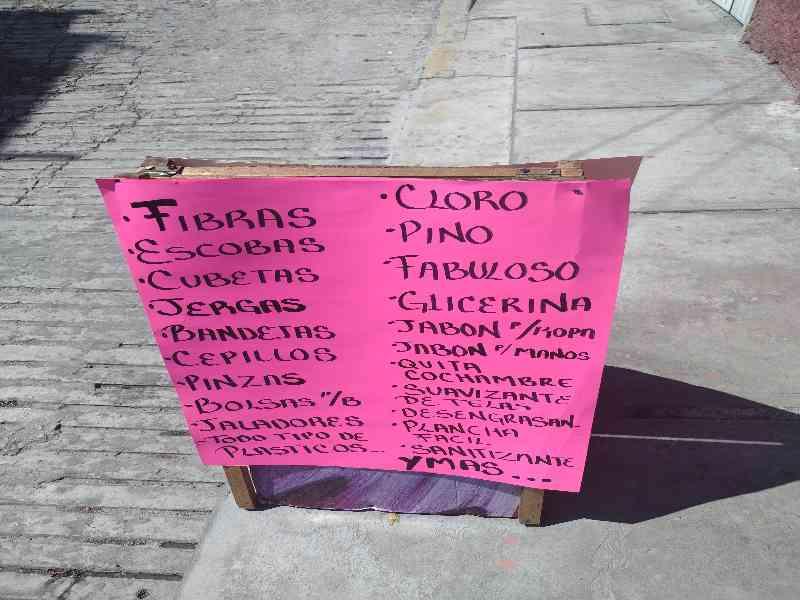 · FIBRAS
· ESCOBAS
· CUBETAS
· JERGAS
· BANDEJAS
- CEPILLOS
- PINZAS
- BOLSAS "/B
- JALADORES
- TODO TIPO DE
PLASTICOS...
· CLORO
· PINO
· FABULOSO
· GLICERINA
· JABON P/ROPA
· JABON P/MANOS
· QUITA
COCHAMBRE
· SUAVIZANTE
DE TELAS
· DESENGRASAN.
· PLANCHA
FACIL.
· SANITIZANTE
Y MAS...